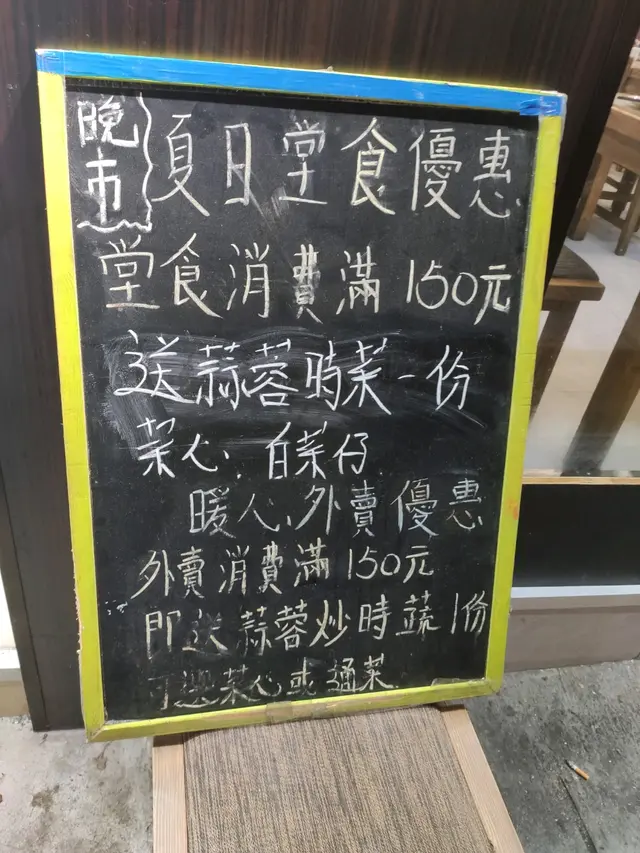 晚市
夏日堂食優惠
堂食消費滿150元
送蒜蓉時菜一份
菜心. 白菜仔
暖心外賣優惠
外賣消費滿150元
即送蒜蓉炒時蔬1份
可選菜心或通菜